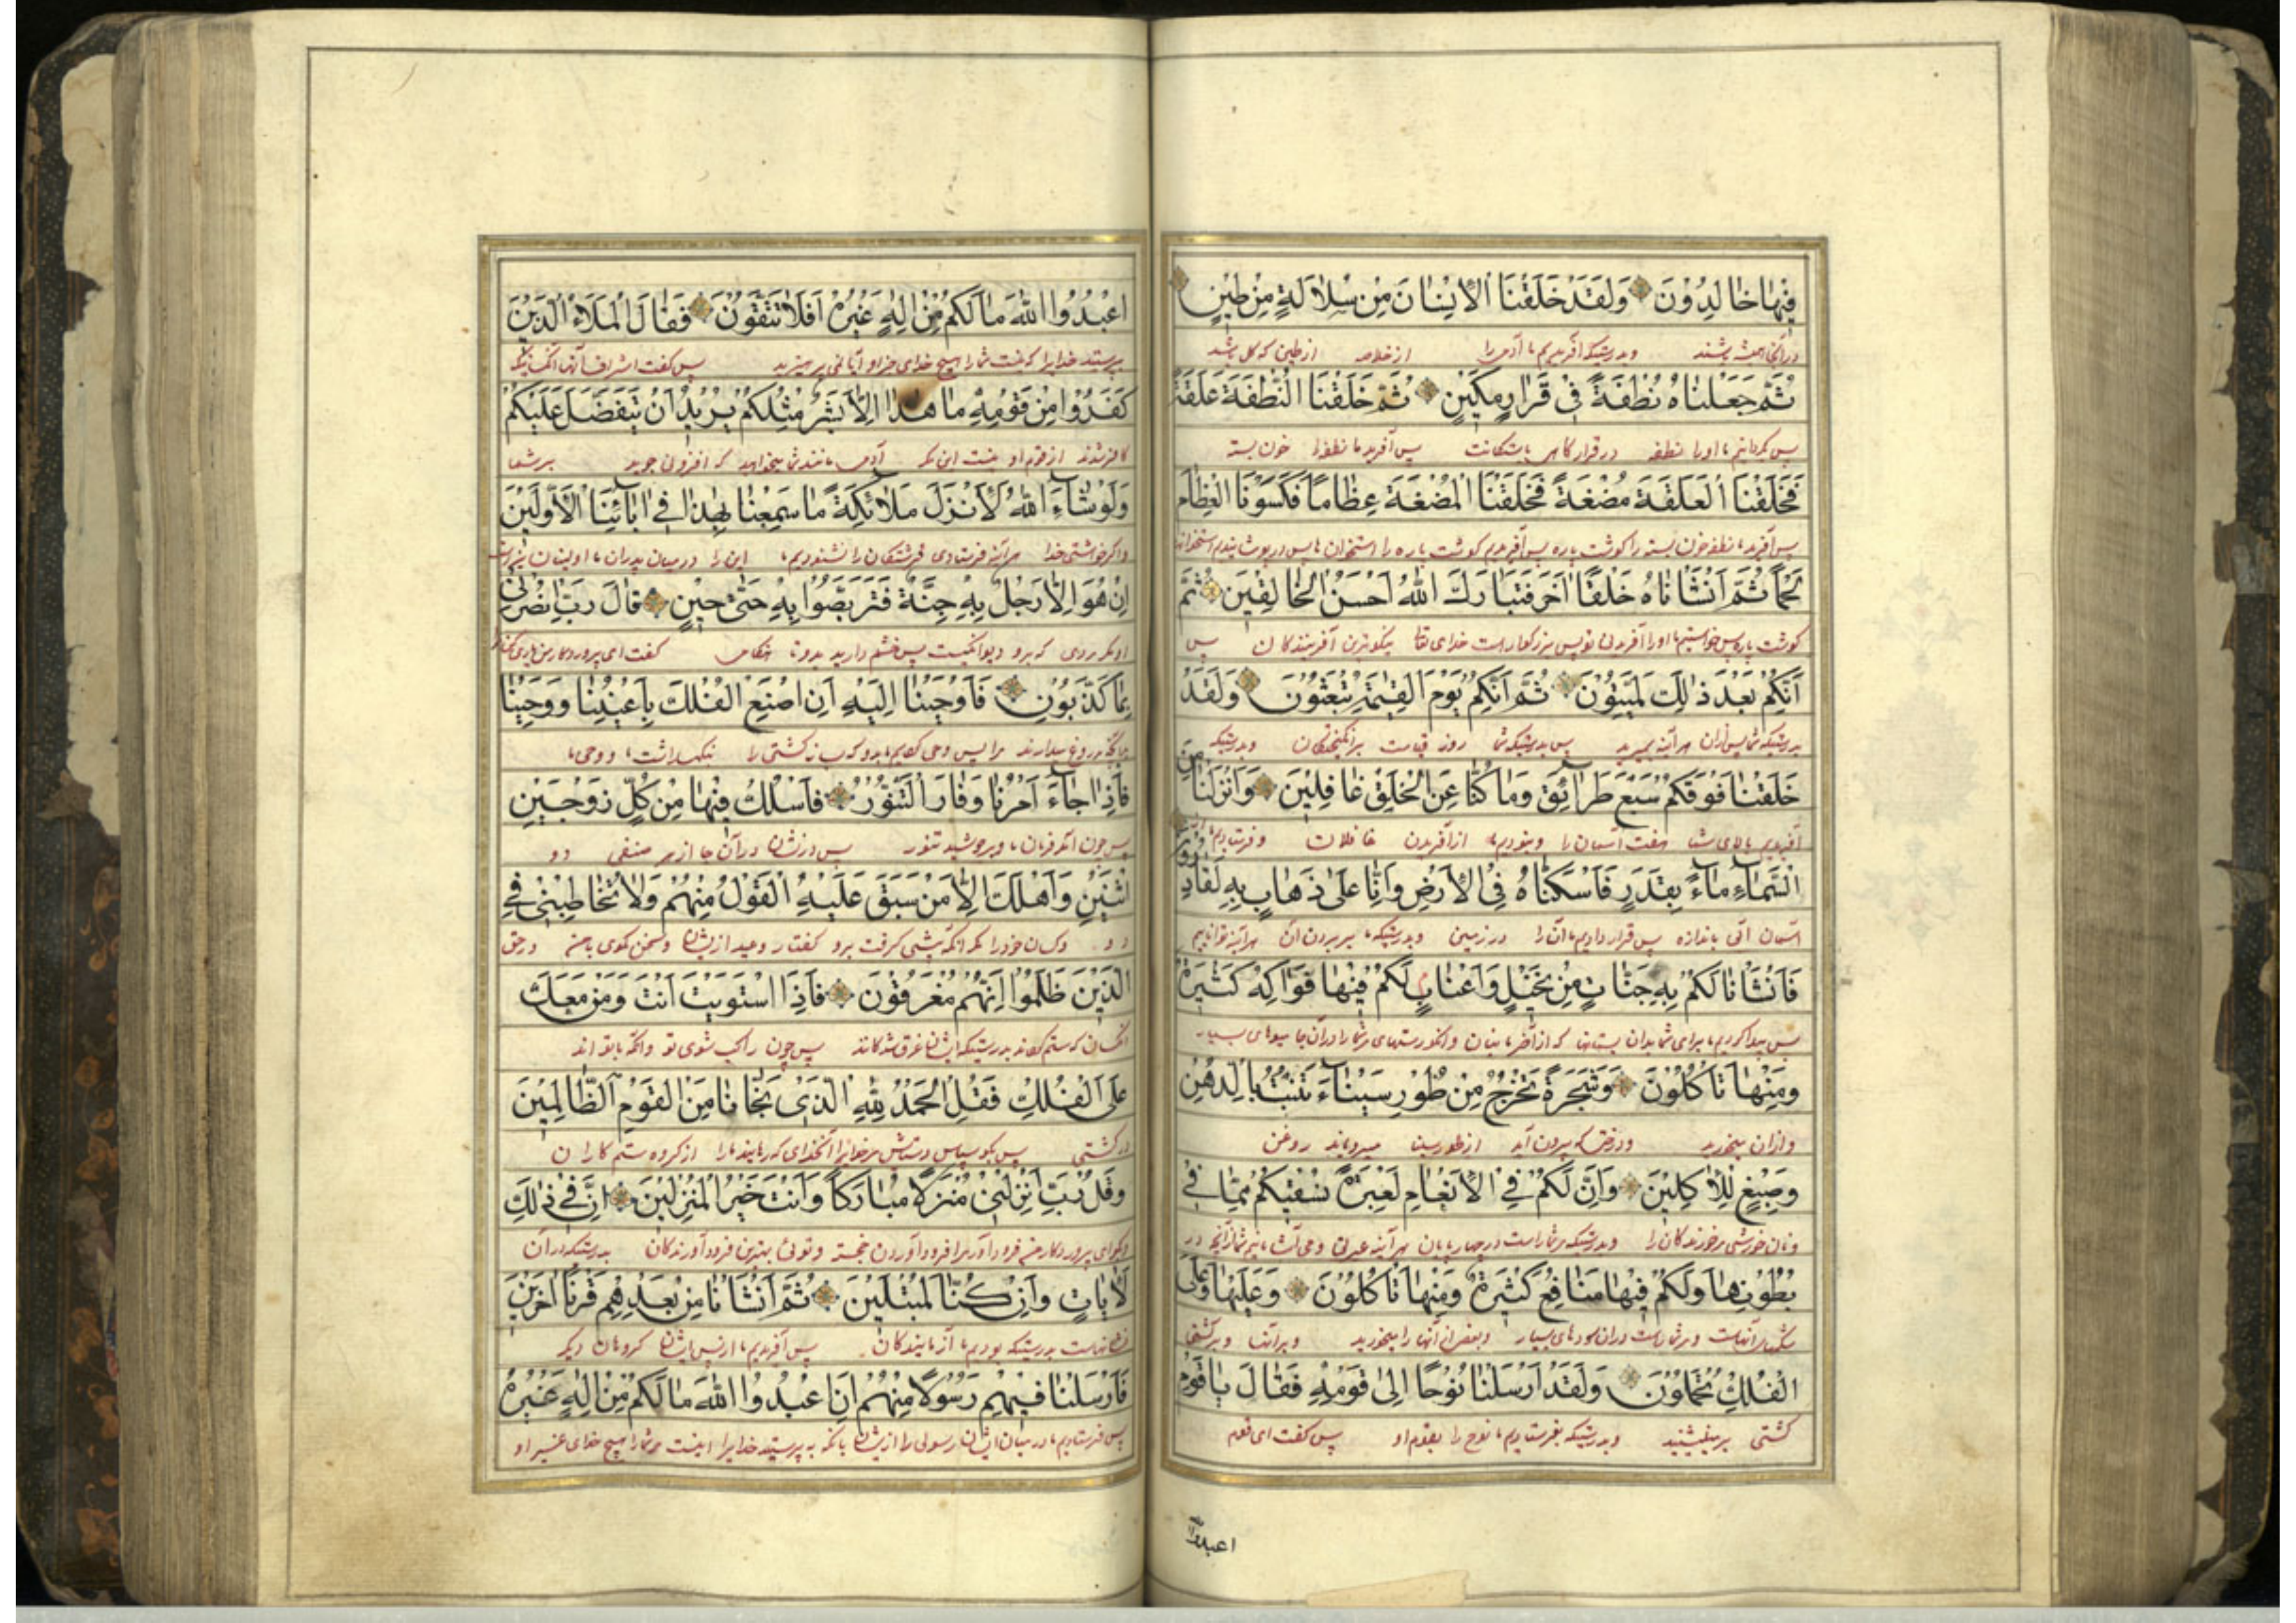 فِيهَا خَالِدُونَ وَلَقَدْ خَلَقْنَا الْاِنْسَانَ مِنْ سُلَالَةٍ مِنْ طِينٍ
در آنجا همیشه باشند وبدرستیکه آفریدیم ما آدمی را از خلاصه از طین که گل باشد
ثُمَّ جَعَلْنَاهُ نُطْفَةً فِي قَرَارٍ مَكِينٍ ثُمَّ خَلَقْنَا النُّطْفَةَ عَلَقَةً
پس گردانیدیم ما اورا نطفه در قرارگاهی پس آفریدیم ما نطفه را خون بسته
فَخَلَقْنَا الْعَلَقَةَ مُضْغَةً فَخَلَقْنَا الْمُضْغَةَ عِظَامًا فَكَسَوْنَا الْعِظَامَ
پس آفریدیم ما نطفه خون بسته را گوشت پاره پس آفریدیم گوشت پاره را استخوان ها پس در پوشانیدیم استخوانها
لَحْمًا ثُمَّ اَنْشَاْنَاهُ خَلْقًا اٰخَرَ فَتَبَارَكَ اللّٰهُ اَحْسَنُ الْخَالِقِينَ ثُمَّ
گوشت پاره پس اورا آفریدنی نو پس بزرگوار است خدای تعا نیکوترین آفرینندگان پس
اِنَّكُمْ بَعْدَ ذٰلِكَ لَمَيِّتُونَ ثُمَّ اِنَّكُمْ يَوْمَ الْقِيٰمَةِ تُبْعَثُونَ وَلَقَدْ
بدرستیکه شما پس ازان هرآینه بمیرید پس بدرستیکه شما روز قیامت برانگیختگان وبدرستیکه
خَلَقْنَا فَوْقَكُمْ سَبْعَ طَرَائِقَ وَمَا كُنَّا عَنِ الْخَلْقِ غَافِلِينَ وَاَنْزَلْنَا مِنَ
آفریدیم بالای شما هفت آسمان را ونبودیم ما از آفریدن غافلان وفرستادیم ما
السَّمَاءِ مَاءً بِقَدَرٍ فَاَسْكَنَّاهُ فِي الْاَرْضِ وَاِنَّا عَلٰى ذَهَابٍ بِهِ لَقَادِرُونَ
آسمان آبی باندازه پس قرار دادیم ما آنرا در زمین وبدرستیکه ما بر بردن آن هرآینه تواناییم
فَاَنْشَاْنَا لَكُمْ بِهِ جَنَّاتٍ مِنْ نَخِيلٍ وَاَعْنَابٍ لَكُمْ فِيهَا فَوَاكِهُ كَثِيرَةٌ
پس پیدا کردیم ما برای شما بدان بستانها که از مر شما را در آن جا میوهای بسیار
وَمِنْهَا تَاْكُلُونَ وَشَجَرَةً تَخْرُجُ مِنْ طُورِ سَيْنَاءَ تَنْبُتُ بِالدُّهْنِ
وازان میخورید ودرختی که بیرون آید از طور سینا میرویاند روغن
وَصِبْغٍ لِلْاٰكِلِينَ وَاِنَّ لَكُمْ فِي الْاَنْعَامِ لَعِبْرَةً نُسْقِيكُمْ مِمَّا فِي
ونان خورشی مر خورندگان را وبدرستیکه مر شما راست در چهارپایان هرآینه عبرتی ومی آشامانیم شما را ازآنچه در
بُطُونِهَا وَلَكُمْ فِيهَا مَنَافِعُ كَثِيرَةٌ وَمِنْهَا تَاْكُلُونَ وَعَلَيْهَا وَعَلَى
شکمهای آنهاست ومر شما راست دران سودهای بسیار وبعضی از آنها را میخورید وبرآنها وبر کشتی
الْفُلْكِ تُحْمَلُونَ وَلَقَدْ اَرْسَلْنَا نُوحًا اِلٰى قَوْمِهِ فَقَالَ يَا قَوْمِ
کشتی بر مینشینید وبدرستیکه بفرستادیم ما نوح را بقوم او پس گفت ای قوم
اعبدوا الله
اعْبُدُوا اللّٰهَ مَا لَكُمْ مِنْ اِلٰهٍ غَيْرُهُ اَفَلَا تَتَّقُونَ فَقَالَ الْمَلَاءُ الَّذِينَ
بپرستید خدایرا که نیست شما را هیچ خدای جز او آیا نمی پرهیزید پس گفت اشراف آنها آنکسانیکه
كَفَرُوا مِنْ قَوْمِهِ مَا هٰذَا اِلَّا بَشَرٌ مِثْلُكُمْ يُرِيدُ اَنْ يَتَفَضَّلَ عَلَيْكُمْ
کافر شدند از قوم او نیست این مگر آدمی مانند شما میخواهد که افزونی جوید بر شما
وَلَوْ شَاءَ اللّٰهُ لَاَنْزَلَ مَلَائِكَةً مَا سَمِعْنَا بِهٰذَا فِي اٰبَائِنَا الْاَوَّلِينَ
واگر خواستی خدا هرآینه فرستادی فرشتگان را نشنودیم ما این را درمیان پدران ما اولینان
اِنْ هُوَ اِلَّا رَجُلٌ بِهِ جِنَّةٌ فَتَرَبَّصُوا بِهِ حَتّٰى حِينٍ قَالَ رَبِّ انْصُرْنِي
او مگر مردی که برو دیوانگیست پس چشم دارید بدو تا هنگامی گفت ای پروردگار من یاری کن
بِمَا كَذَّبُونِ فَاَوْحَيْنَا اِلَيْهِ اَنِ اصْنَعِ الْفُلْكَ بِاَعْيُنِنَا وَوَحْيِنَا
بدانچه دروغ میدارند مرا پس وحی کردیم ما بدو که بساز کشتی را بنگهداشت ما ووحی ما
فَاِذَا جَاءَ اَمْرُنَا وَفَارَ التَّنُّورُ فَاسْلُكْ فِيهَا مِنْ كُلٍّ زَوْجَيْنِ
پس چون فرمان ما وبرجوشید تنور پس در آن جا از هر صنفی دو
اثْنَيْنِ وَاَهْلَكَ اِلَّا مَنْ سَبَقَ عَلَيْهِ الْقَوْلُ مِنْهُمْ وَلَا تُخَاطِبْنِي فِي
دو وکسان خود را مگر آنکه پیشی گرفت برو گفتار وعید از ایشان وسخن مگوی بامن در حق
الَّذِينَ ظَلَمُوا اِنَّهُمْ مُغْرَقُونَ فَاِذَا اسْتَوَيْتَ اَنْتَ وَمَنْ مَعَكَ
آنکسان که ستم کردند بدرستیکه ایشان غرق شدگانند پس چون راکب شوی تو وآنکه با تو اند
عَلَى الْفُلْكِ فَقُلِ الْحَمْدُ لِلّٰهِ الَّذِي نَجَّانَا مِنَ الْقَوْمِ الظَّالِمِينَ
در کشتی پس بگو سپاس وستایش مر خدایرا آنخدای که رهانید ما را از گروه ستم کاران
وَقُلْ رَبِّ اَنْزِلْنِي مُنْزَلًا مُبَارَكًا وَاَنْتَ خَيْرُ الْمُنْزِلِينَ اِنَّ فِي ذٰلِكَ
وبگو ای پروردگار من فرود آور مرا فرود آوردن خجسته وتوئی بهترین فرود آورندگان بدرستیکه درآن
لَاٰيَاتٍ وَاِنْ كُنَّا لَمُبْتَلِينَ ثُمَّ اَنْشَاْنَا مِنْ بَعْدِهِمْ قَرْنًا اٰخَرِينَ
نشانهاست بدرستیکه بودیم ما آزمایندگان پس آفریدیم ما از پس ایشان گروهان دیگر
فَاَرْسَلْنَا فِيهِمْ رَسُولًا مِنْهُمْ اَنِ اعْبُدُوا اللّٰهَ مَا لَكُمْ مِنْ اِلٰهٍ غَيْرُهُ
پس فرستادیم ما درمیان ایشان رسولی را از ایشان بآنکه بپرستید خدایرا نیست مر شما را هیچ خدای غیر او